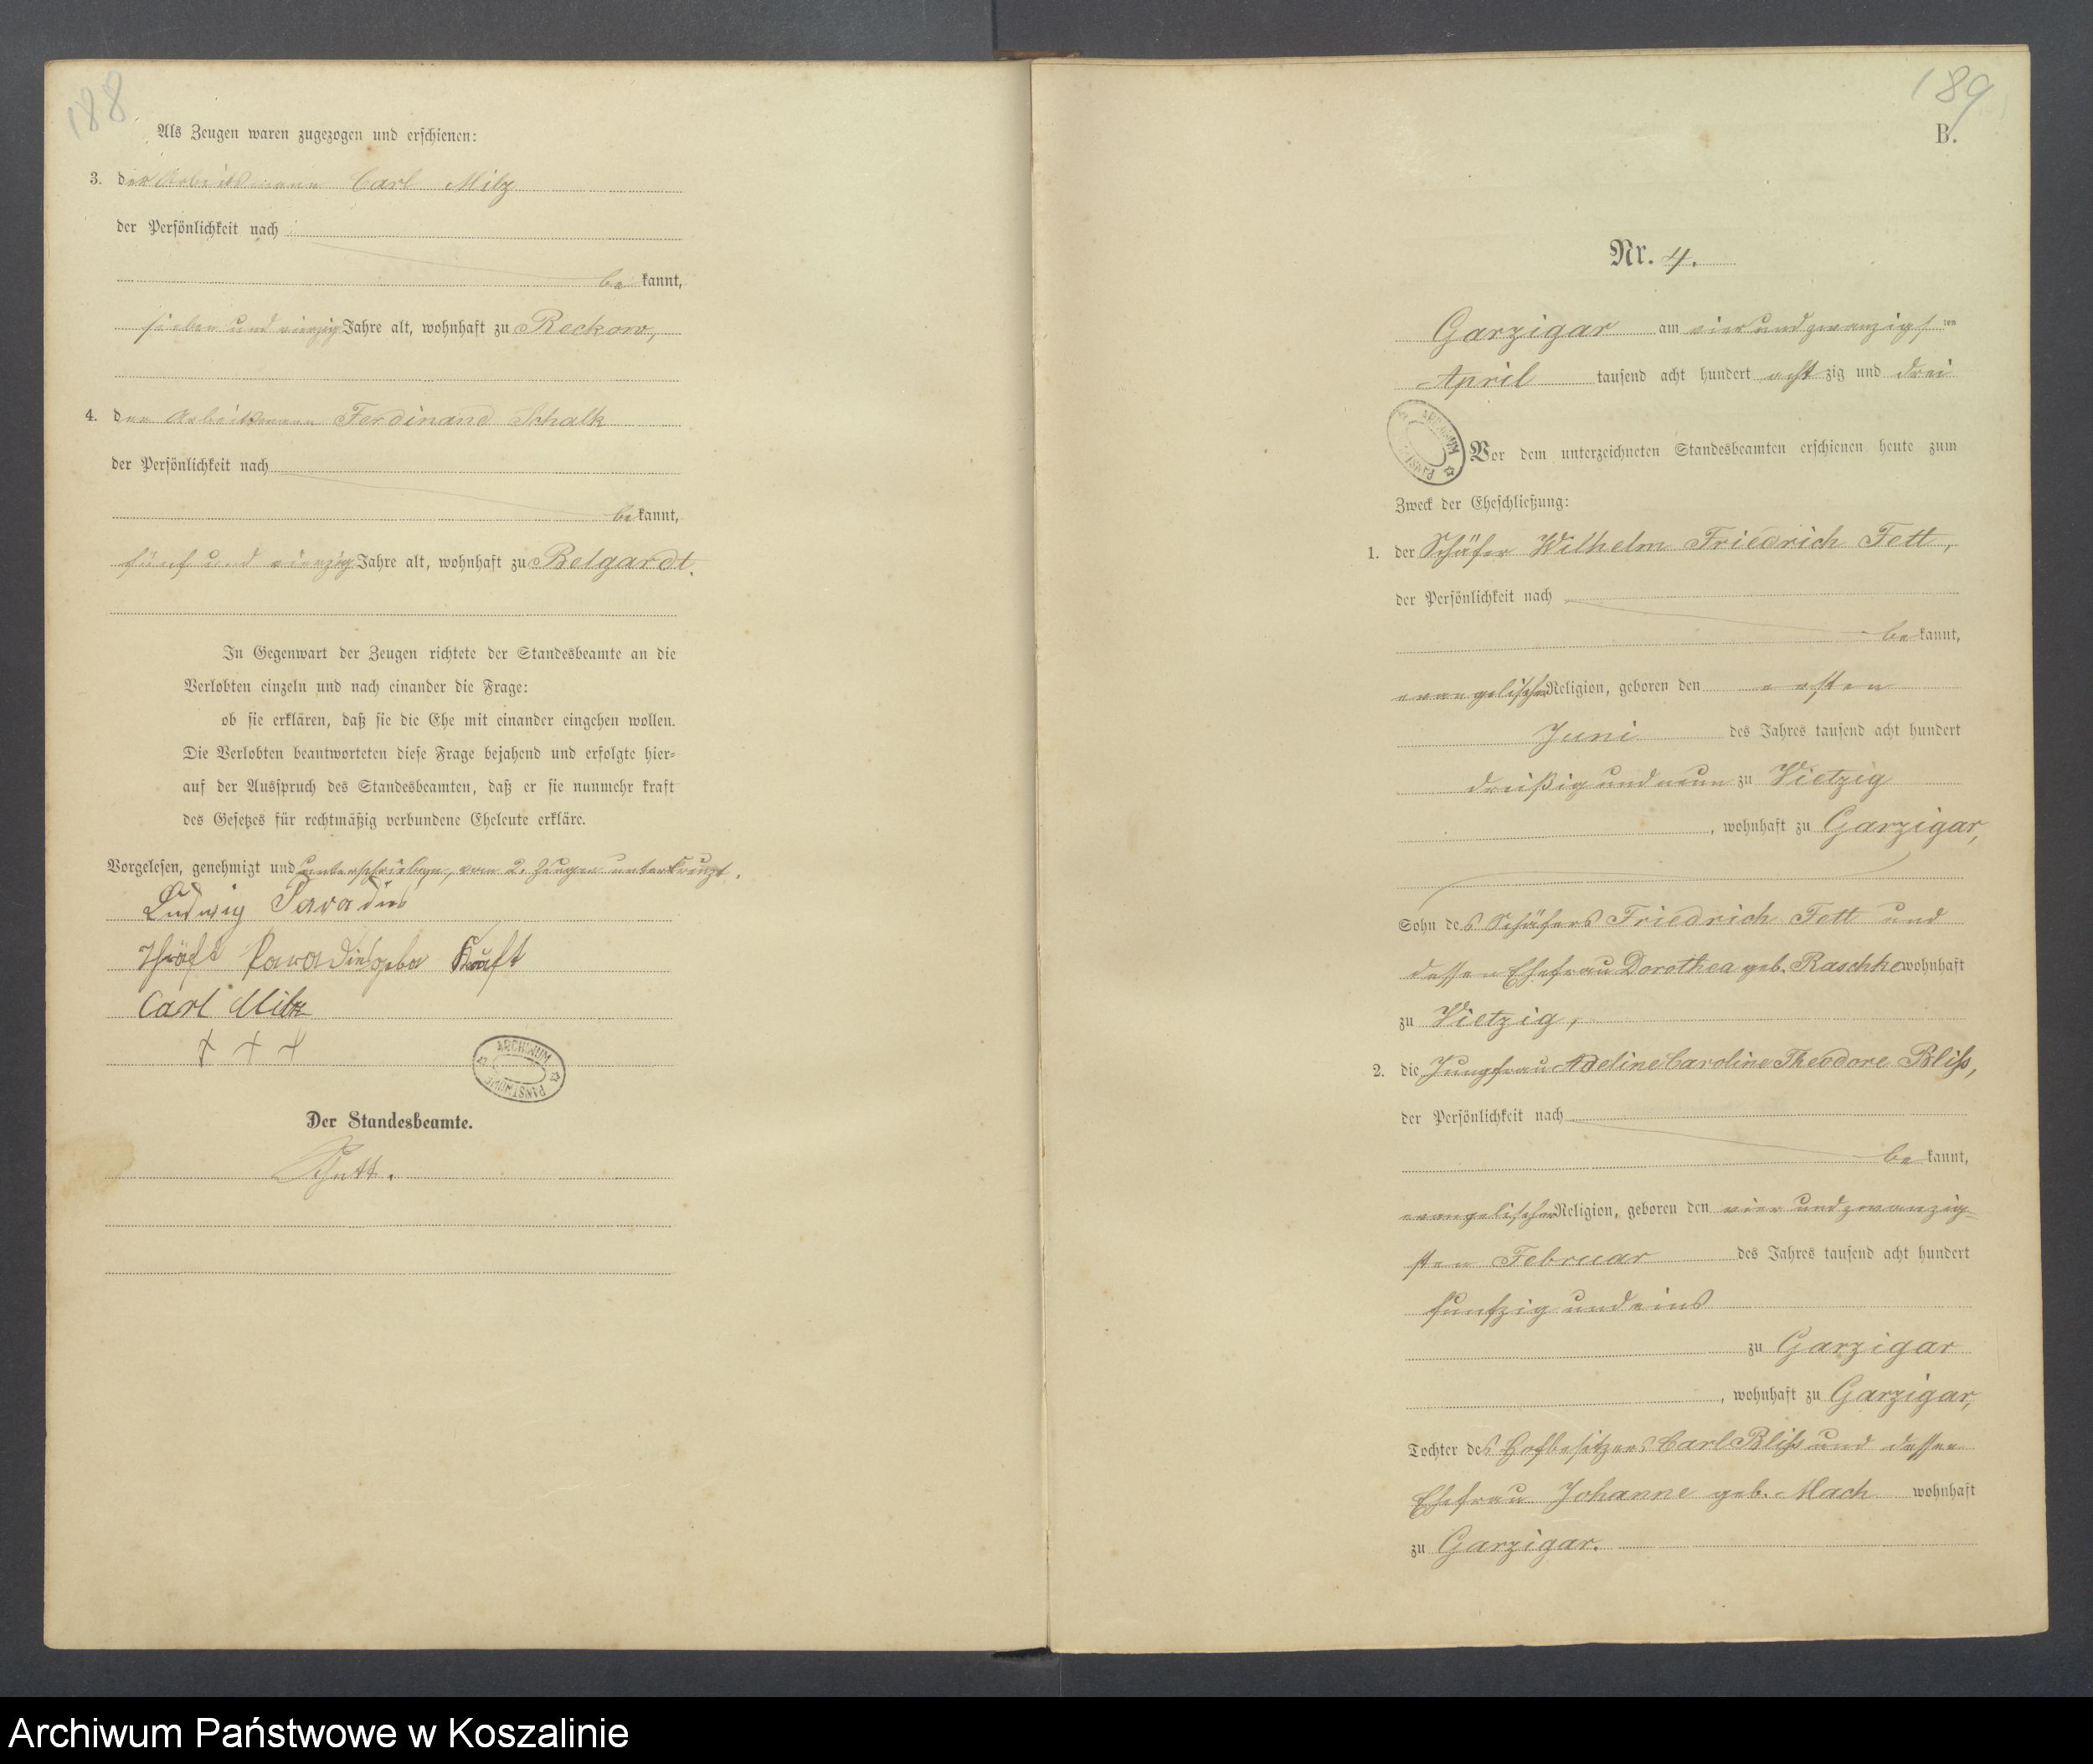 188
Als Zeugen waren zugezogen und erschienen:
3. der Arbeitsmann Carl Milz
der Persönlichkeit nach
be kannt,
sieben und vierzig Jahre alt, wohnhaft zu Reckow,
4. der Arbeitsmann Ferdinand Schalk
der Persönlichkeit nach
be kannt,
fünf und vierzig Jahre alt, wohnhaft zu Belgardt.
In Gegenwart der Zeugen richtete der Standesbeamte an die
Verlobten einzeln und nach einander die Frage:
ob sie erklären, daß sie die Ehe mit einander eingehen wollen.
Die Verlobten beantworteten diese Frage bejahend und erfolgte hier-
auf der Ausspruch des Standesbeamten, daß er sie nunmehr kraft
des Gesetzes für rechtmäßig verbundene Eheleute erkläre.
Vorgelesen, genehmigt und unterschrieben, vom 2. Zeugen unterkreuzt.
Ludwig Paradies
Paradies geb Kräft
Carl Milz
+ + +
ARCHIWUM PAŃSTWOWE
Der Standesbeamte.
189
B.
Nr. 4.
Garzigar am vier und zwanzigsten
April tausend acht hundert achtzig und drei
ARCHIWUM PAŃSTW
Vor dem unterzeichneten Standesbeamten erschienen heute zum
Zweck der Eheschließung:
1. der Schäfer Wilhelm Friedrich Fett,
der Persönlichkeit nach
be kannt,
evangelischer Religion, geboren den ersten
Juni des Jahres tausend acht hundert
dreißig und neun zu Vietzig
, wohnhaft zu Garzigar,
Sohn des Schäfers Friedrich Fett und
dessen Ehefrau Dorothea geb. Raschke wohnhaft
zu Vietzig,
2. die Jungfrau Adeline Caroline Theodore Bliß,
der Persönlichkeit nach
be kannt,
evangelischer Religion, geboren den vier und zwanzig-
sten Februar des Jahres tausend acht hundert
funfzig und eins
zu Garzigar
, wohnhaft zu Garzigar,
Tochter des Hofbesitzers Carl Bliß und dessen
Ehefrau Johanne geb. Mach wohnhaft
zu Garzigar.
Archiwum Państwowe w Koszalinie